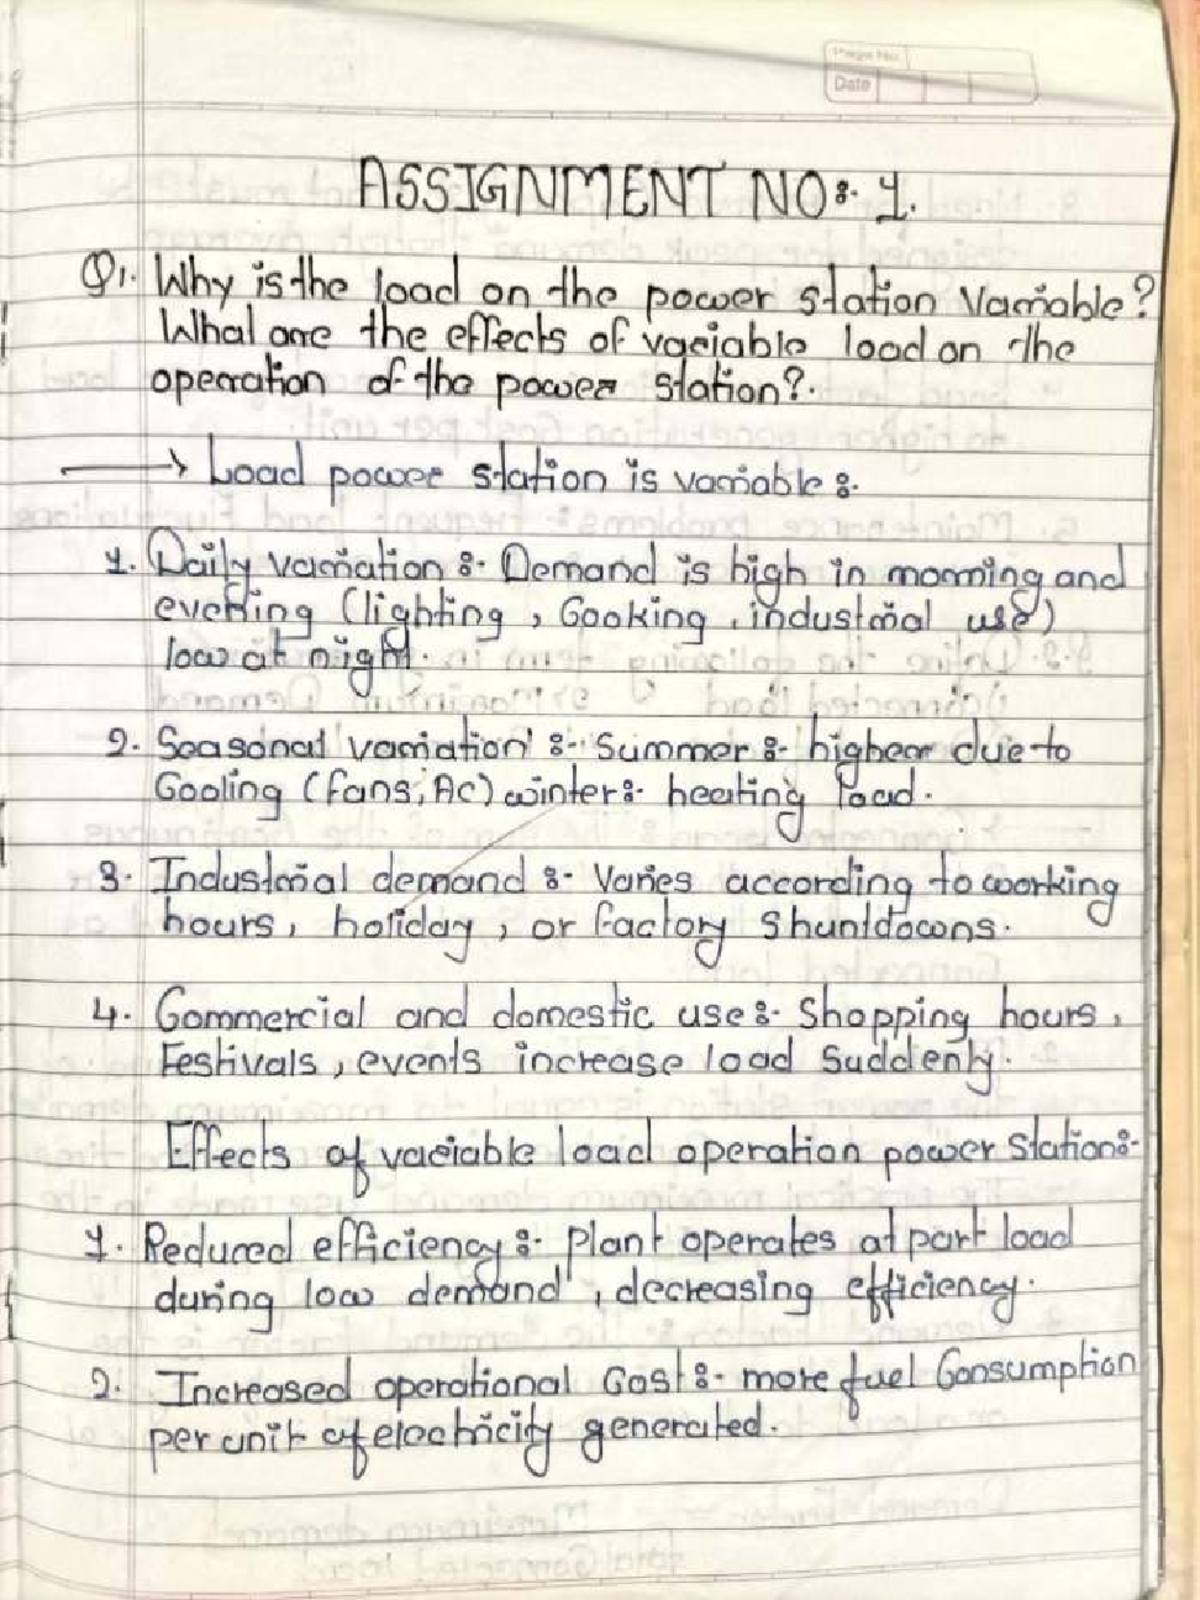 Page No.
Date
ASSIGNMENT NO:- 1.
Q1. Why is the load on the power station variable?
What are the effects of variable load on the
operation of the power station?.
→ Load power station is variable :-
1. Daily variation :- Demand is high in morning and
evening (lighting, Cooking, industrial use)
low at night.
2. Seasonal variation :- Summer :- higher due to
Cooling (fans, AC) winter :- heating load.
3. Industrial demand :- Varies according to working
hours, holiday, or factory shuntdowns.
4. Commercial and domestic use :- Shopping hours,
Festivals, events increase load Suddenly.
Effects of variable load operation power Station :-
1. Reduced efficiency :- Plant operates at part load
during low demand, decreasing efficiency.
2. Increased operational Cost :- more fuel Consumption
per unit of electricity generated.